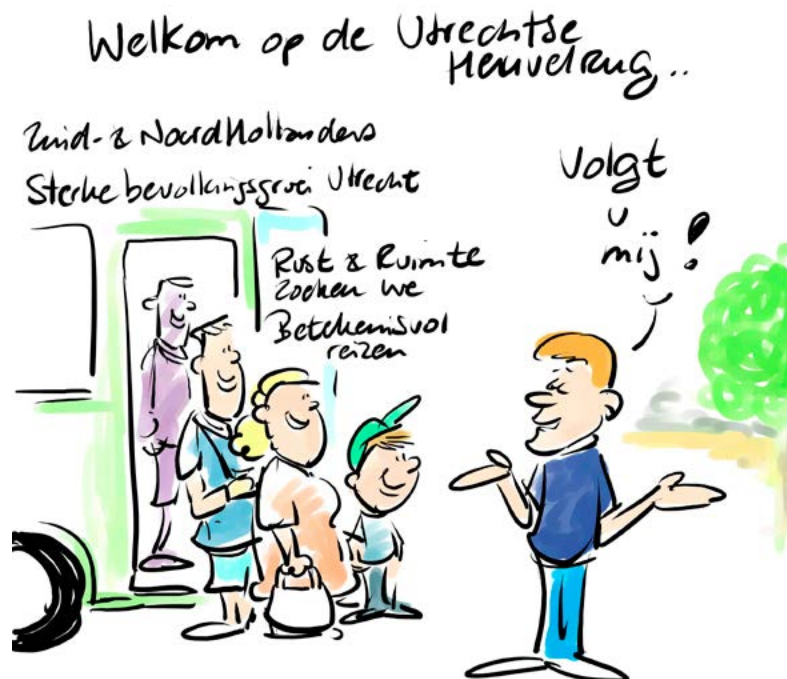 Welkom op de Utrechtse
Heuvelrug..
Zuid- & Noord Hollanders
Sterke bevolkingsgroei Utrecht
Rust & Ruimte
zoeken we
Betekenisvol
reizen
Volgt
u
mij!